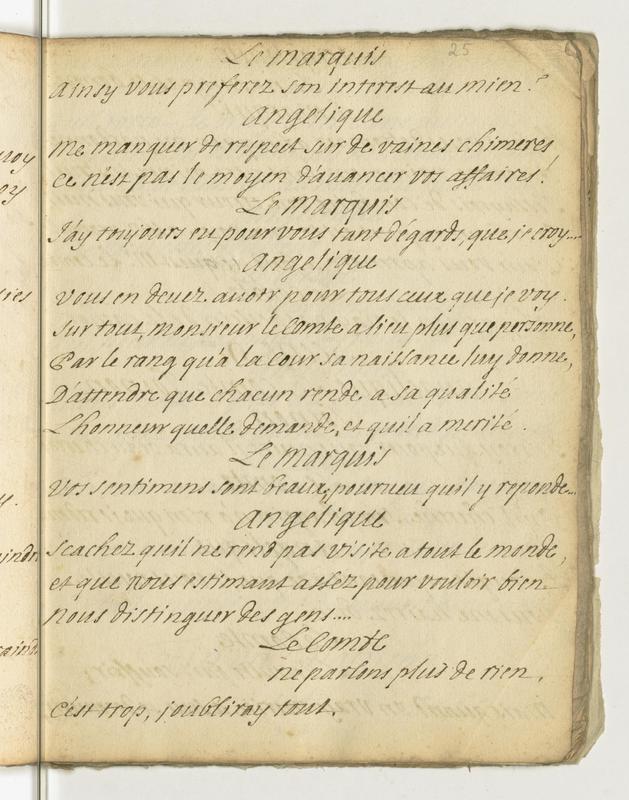 25
Le Marquis
ainsy vous preferez son interest au mien?
Angelique
me manquer de respect sur de vaines chimeres
ce n'est pas le moyen d'avancer vos affaires!
Le Marquis
J'ay toujours eu pour vous tant d'égards, que je croy...
Angelique
vous en devez avoir pour tous ceux que je voy.
sur tout, monsieur le Comte a lieu plus que personne,
Par le rang qu'a la Cour sa naissance luy donne,
D'attendre que chacun rende a sa qualité
L'honneur quelle demande, et quil a merité.
Le Marquis
vos sentimens sont beaux, pourveu quil y reponde...
Angelique
scachez quil ne rend pas visite a tout le monde,
et que nous estimant assez pour vouloir bien
nous distinguer des gens....
Le Comte
ne parlons plus de rien,
c'est trop, j'oubliray tout.